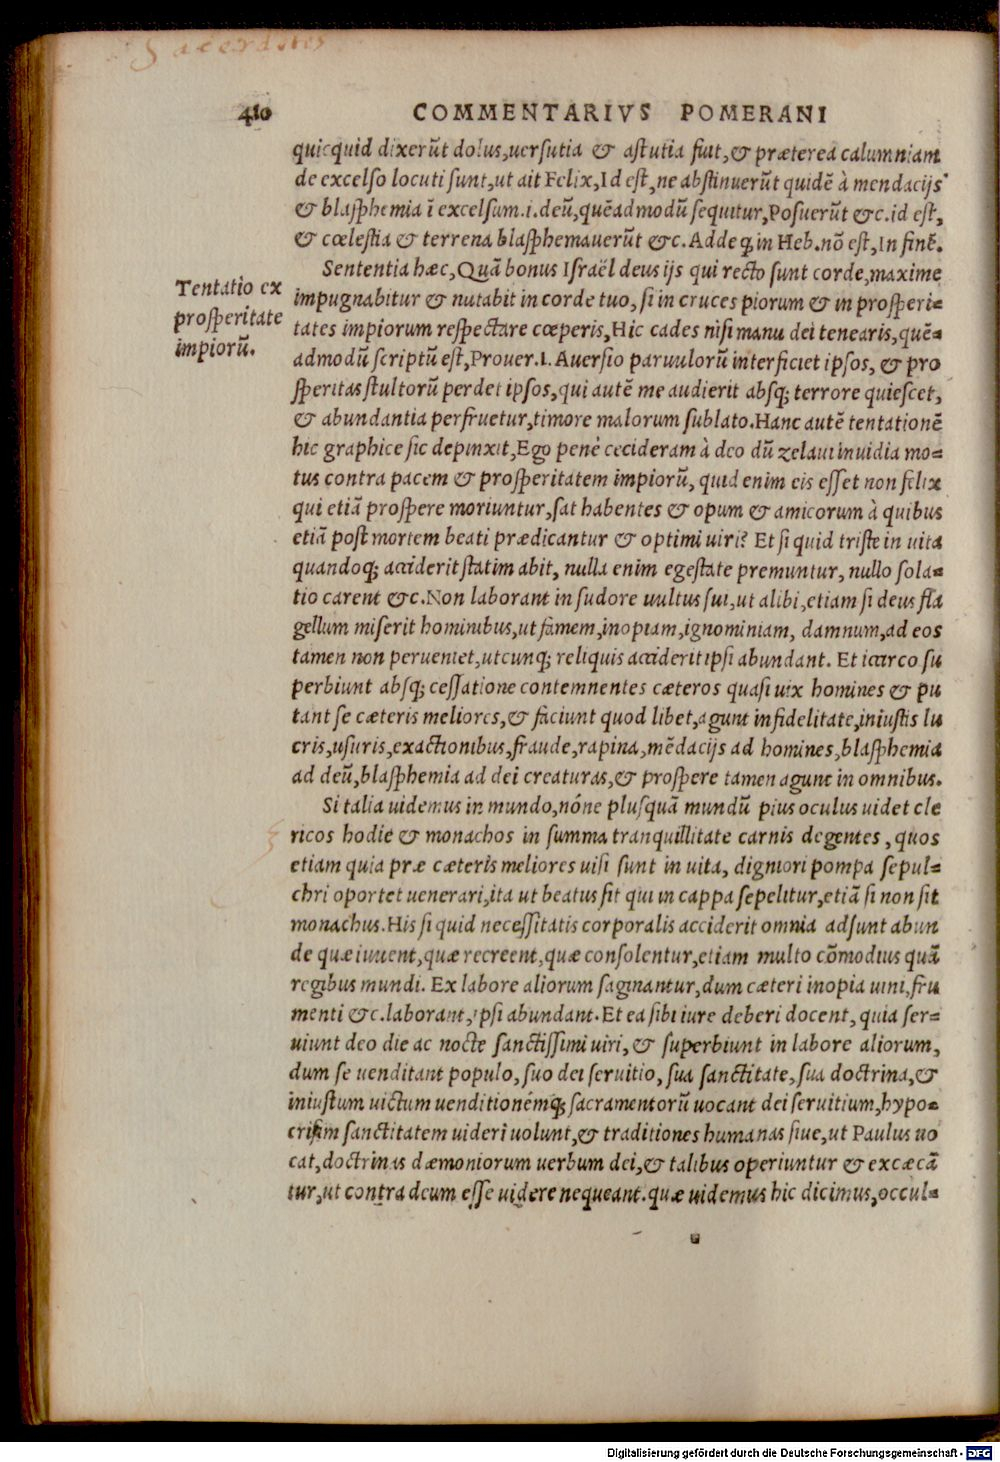 Sacerdotes
410 COMMENTARIVS POMERANI
quicquid dixerūt dolus,uersutia & astutia fuit,& præterea calumniam
de excelso locuti sunt,ut ait Felix,Id est,ne abstinuerūt quidē à mendacijs
& blasphemia ī excelsum.i.deū,quēadmodū sequitur,Posuerūt &c.id est,
& cœlestia & terrena blasphemauerūt &c.Addeq; in Heb.nō est,In finē.
Sententia hæc,Quā bonus Israël deus ijs qui recto sunt corde,maxime
Tentatio ex
prosperitate
impiorū.
impugnabitur & nutabit in corde tuo, si in cruces piorum & in prosperi=
tates impiorum respectare cœperis,Hic cades nisi manu dei tenearis,quē=
admodū scriptū est,Prouer.1.Auersio paruulorū interficiet ipsos, & pro
speritas stultorū perdet ipsos,qui autē me audierit absq; terrore quiescet,
& abundantia perfruetur,timore malorum sublato.Hanc autē tentationē
hic graphice sic depinxit,Ego penè cecideram à deo dū zelaui inuidia mo=
tus contra pacem & prosperitatem impiorū, quid enim eis esset non felix
qui etiā prospere moriuntur,sat habentes & opum & amicorum à quibus
etiā post mortem beati prædicantur & optimi uiri? Et si quid triste in uita
quandoq; acciderit statim abit, nulla enim egestate premuntur, nullo sola=
tio carent &c.Non laborant in sudore uultus sui,ut alibi,etiam si deus fla
gellum miserit hominibus,ut famem,inopiam,ignominiam, damnum,ad eos
tamen non perueniet,utcunq; reliquis acciderit ipsi abundant. Et icirco su
perbiunt absq; cessatione contemnentes cæteros quasi uix homines & pu
tant se cæteris meliores,& faciunt quod libet,agunt infidelitate,iniustis lu
cris,usuris,exactionibus,fraude,rapina,mēdacijs ad homines,blasphemia
ad deū,blasphemia ad dei creaturas,& prospere tamen agunt in omnibus.
Si talia uidemus in mundo,nónne plusquā mundū pius oculus uidet cle
ricos hodie & monachos in summa tranquillitate carnis degentes, quos
etiam quia præ cæteris meliores uisi sunt in uita, digniori pompa sepul=
chri oportet uenerari,ita ut beatus sit qui in cappa sepelitur,etiā si non sit
monachus.His si quid necessitatis corporalis acciderit omnia adsunt abun
de quæ iuuent,quæ recreent,quæ consolentur,etiam multo cōmodius quā
regibus mundi. Ex labore aliorum saginantur,dum cæteri inopia uini,fru
menti &c.laborant,ipsi abundant.Et ea sibi iure deberi docent, quia ser=
uiunt deo die ac nocte sanctissimi uiri, & superbiunt in labore aliorum,
dum se uenditant populo, suo dei seruitio, sua sanctitate, sua doctrina,&
iniustum uictum uenditionémq; sacramentorū uocant dei seruitium,hypo=
crisim sanctitatem uideri uolunt,& traditiones humanas siue,ut Paulus uo
cat,doctrinas dæmoniorum uerbum dei,& talibus operiuntur & excæcā
tur,ut contra deum esse uidere nequeant.quæ uidemus hic dicimus,occul=
Digitalisierung gefördert durch die Deutsche Forschungsgemeinschaft - DFG